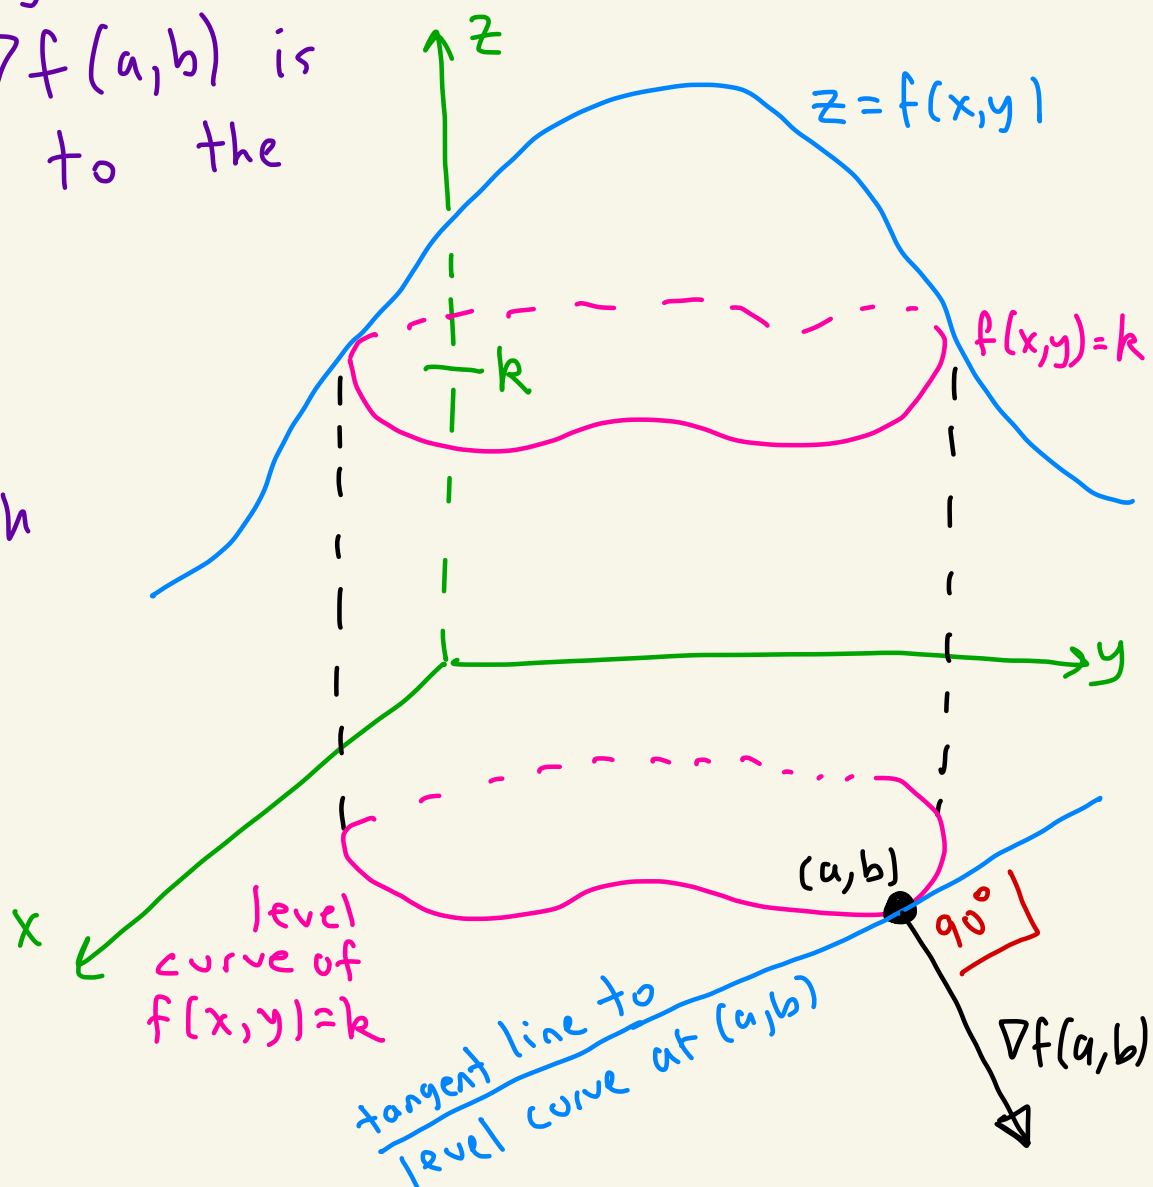 ∇f(a,b) is
to the
h
z
z=f(x,y)
f(x,y)=k
k
y
x
(a,b)
90°
level
curve of
f(x,y)=k
tangent line to
level curve at (a,b)
∇f(a,b)